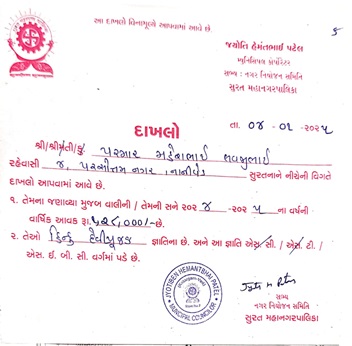 આ દાખલો વિનામૂલ્યે આપવામાં આવે છે.
જ્યોતિ હેમંતભાઈ પટેલ
મ્યુનિસિપલ કોર્પોરેટર
સભ્ય : નગર નિયોજન સમિતિ
સુરત મહાનગરપાલિકા
દાખલો
તા. ૦૪ - ૦૨ - ૨૦૨૫
શ્રી/શ્રીમતી/કુ. પરમાર મહેશભાઈ
રહેવાસી ૪, પરસોત્તમ નગર, નાનીવેડ સુરતનાને નીચેની વિગતે
દાખલો આપવામાં આવે છે.
૧. તેમના જણાવ્યા મુજબ વાલીની / તેમની સને ૨૦૨ ૪ -૨૦૨ ૫ ના વર્ષની
વાર્ષિક આવક રૂા. ,000/- છે.
૨. તેઓ હિન્દુ દેવીપૂજક જ્ઞાતિના છે. અને આ જ્ઞાતિ એસ.સી. / એસ. ટી. /
એસ. ઈ. બી. સી. વર્ગમાં પડે છે.
JYOTIBEN HEMANTBHAI PATEL
MUNICIPAL COUNCILOR
સભ્ય
નગર નિયોજન સમિતિ
સુરત મહાનગરપાલિકા